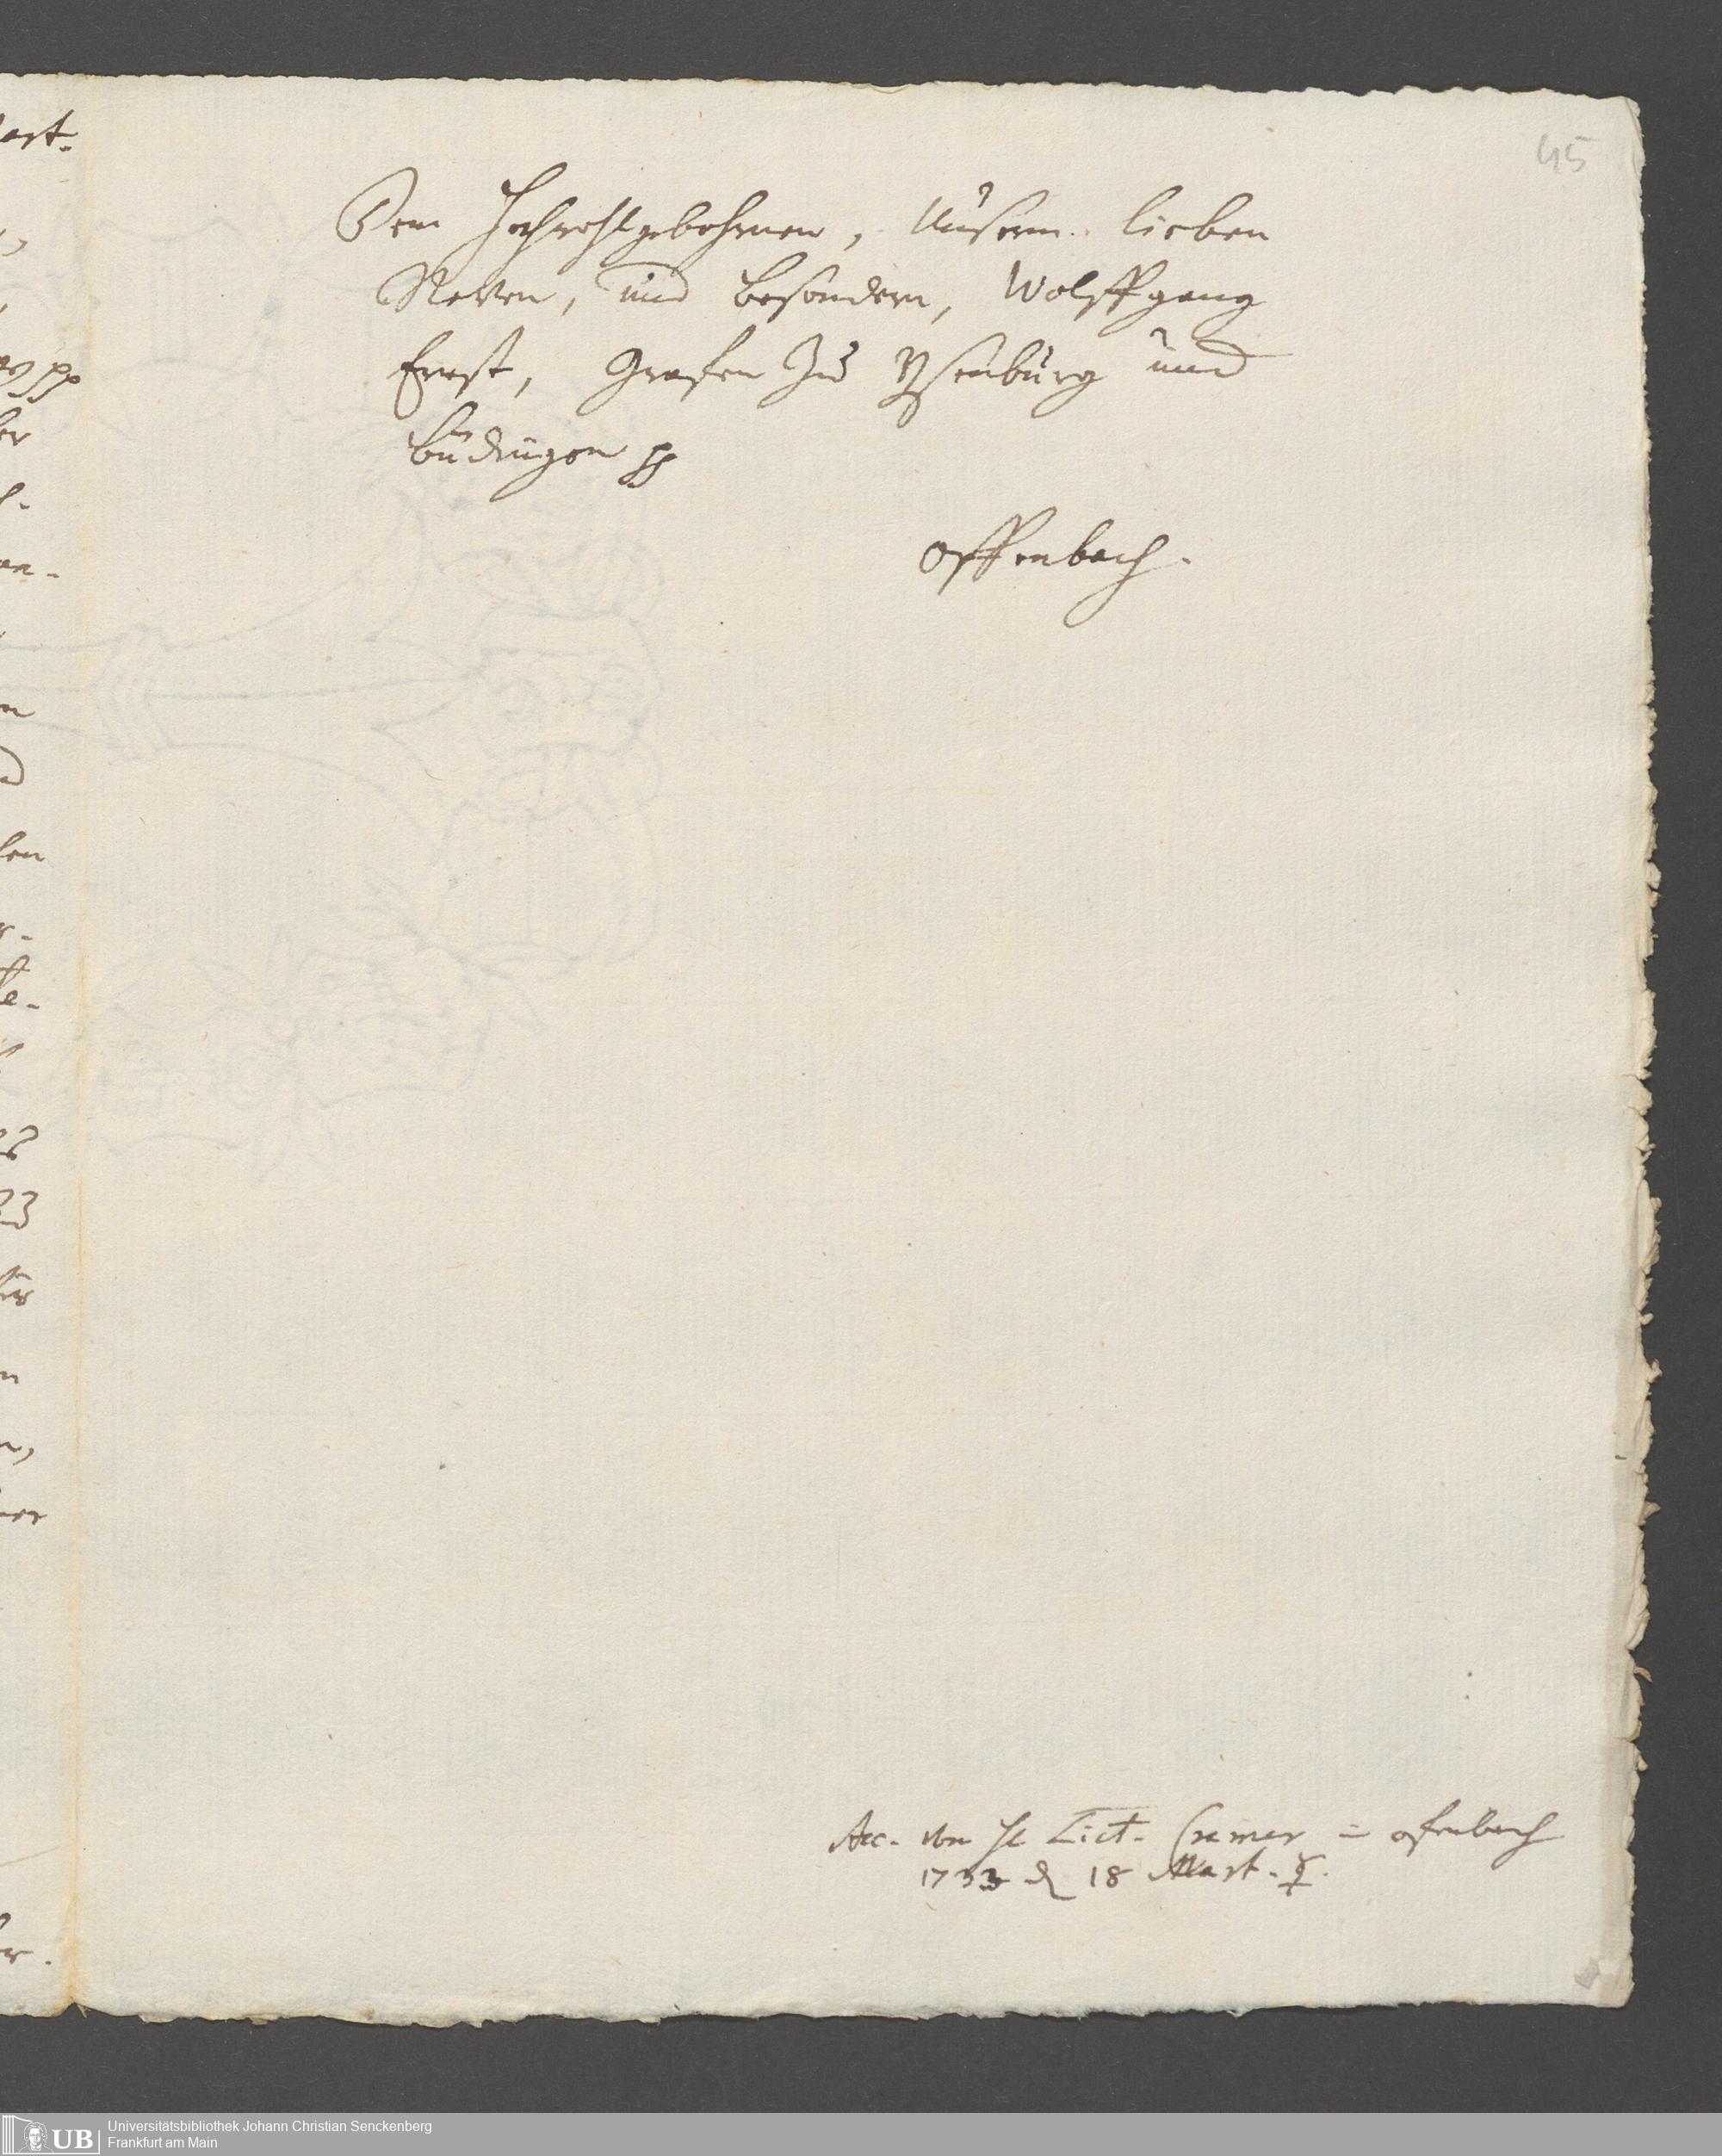 45
Dem Hochwohlgebohrnen, Unserm lieben
Neven, und besondern, Wolffgang
Ernst, Grafen zu Ysenburg und
Büdingen pp
Offenbach.
Acc. von H Lict. Cramer in Ofenbach
1733 d 18 Mart. ☿.
UB
Universitätsbibliothek Johann Christian Senckenberg
Frankfurt am Main